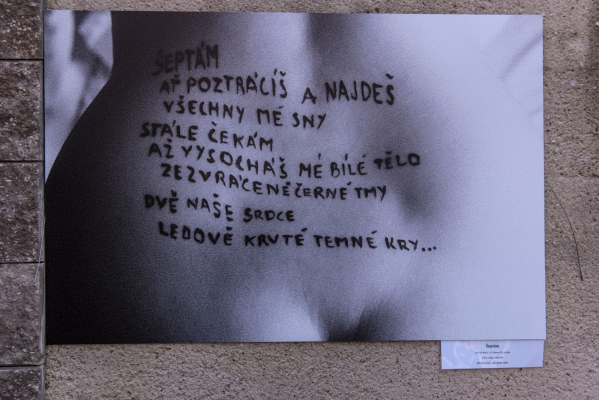 ŠEPTÁM
AŤ POZTRÁCÍŠ A NAJDEŠ
VŠECHNY MÉ SNY
STÁLE ČEKÁM
AŽ VYSOCHÁŠ MÉ BÍLÉ TĚLO
ZE ZVRÁCENÉ ČERNÉ TMY
DVĚ NAŠE SRDCE
LEDOVĚ KRUTÉ TEMNÉ KRY...